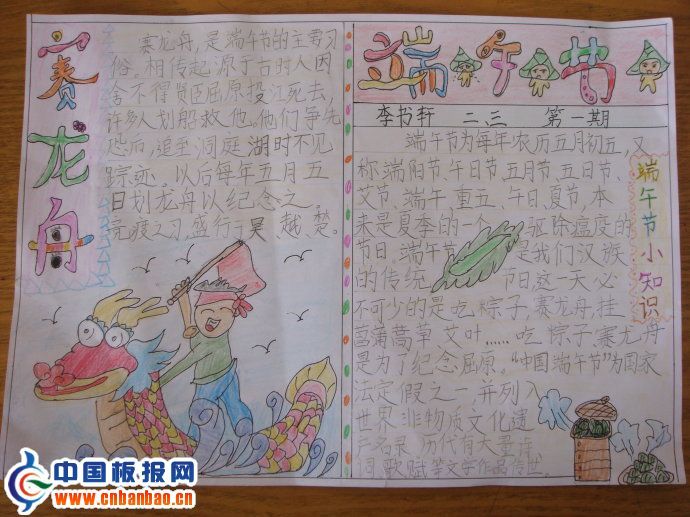 赛龙舟
赛龙舟,是端午节的主要习
俗。相传起源于古时人因
舍不得贤臣屈原投江死去,
许多人划船救他。他们争先
恐后,追至洞庭湖时不见
踪迹。以后每年五月五
日划龙舟以纪念之。
竞渡之习盛行于吴、越、楚。
端午节
李书轩 二、三 第一期
端午节为每年农历五月初五,又
称端阳节、午日节、五月节、五日节、
艾节、端午、重五、午日、夏节,本
来是夏季的一个 驱除瘟疫的
节日,端午节 是我们汉族
的传统 节日,这一天必
不可少的是吃粽子,赛龙舟,挂
菖蒲蒿草艾叶……吃粽子赛龙舟
是为了纪念屈原。“中国端午节”为国家
法定假之一并列入
世界非物质文化遗
名录 历代有大量诗
词歌赋等文学作品传世。
端午节小知识
中国板报网
www.cnbanbao.cn